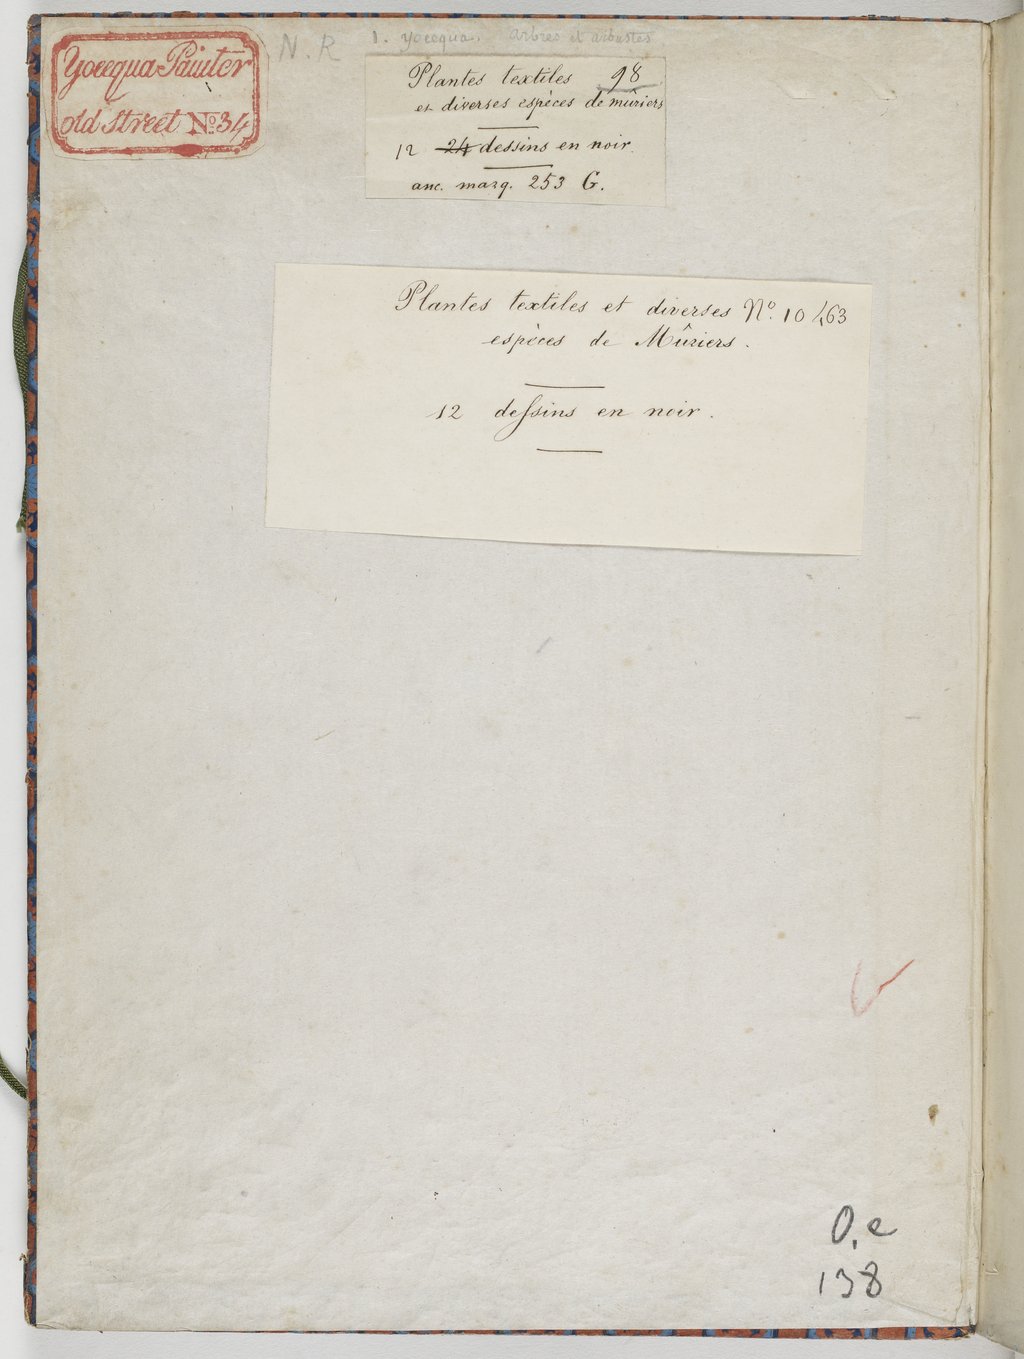 Yoeequa Painter
old Street No 34
N. R
1. Yoeequa. Arbres et arbustes
Plantes textiles 98
et diverses espèces de mûriers
12 24 dessins en noir
anc. marq. 253 G.
Plantes textiles et diverses No. 10463
espèces de Mûriers.
12 deſsins en noir.
O.e
138